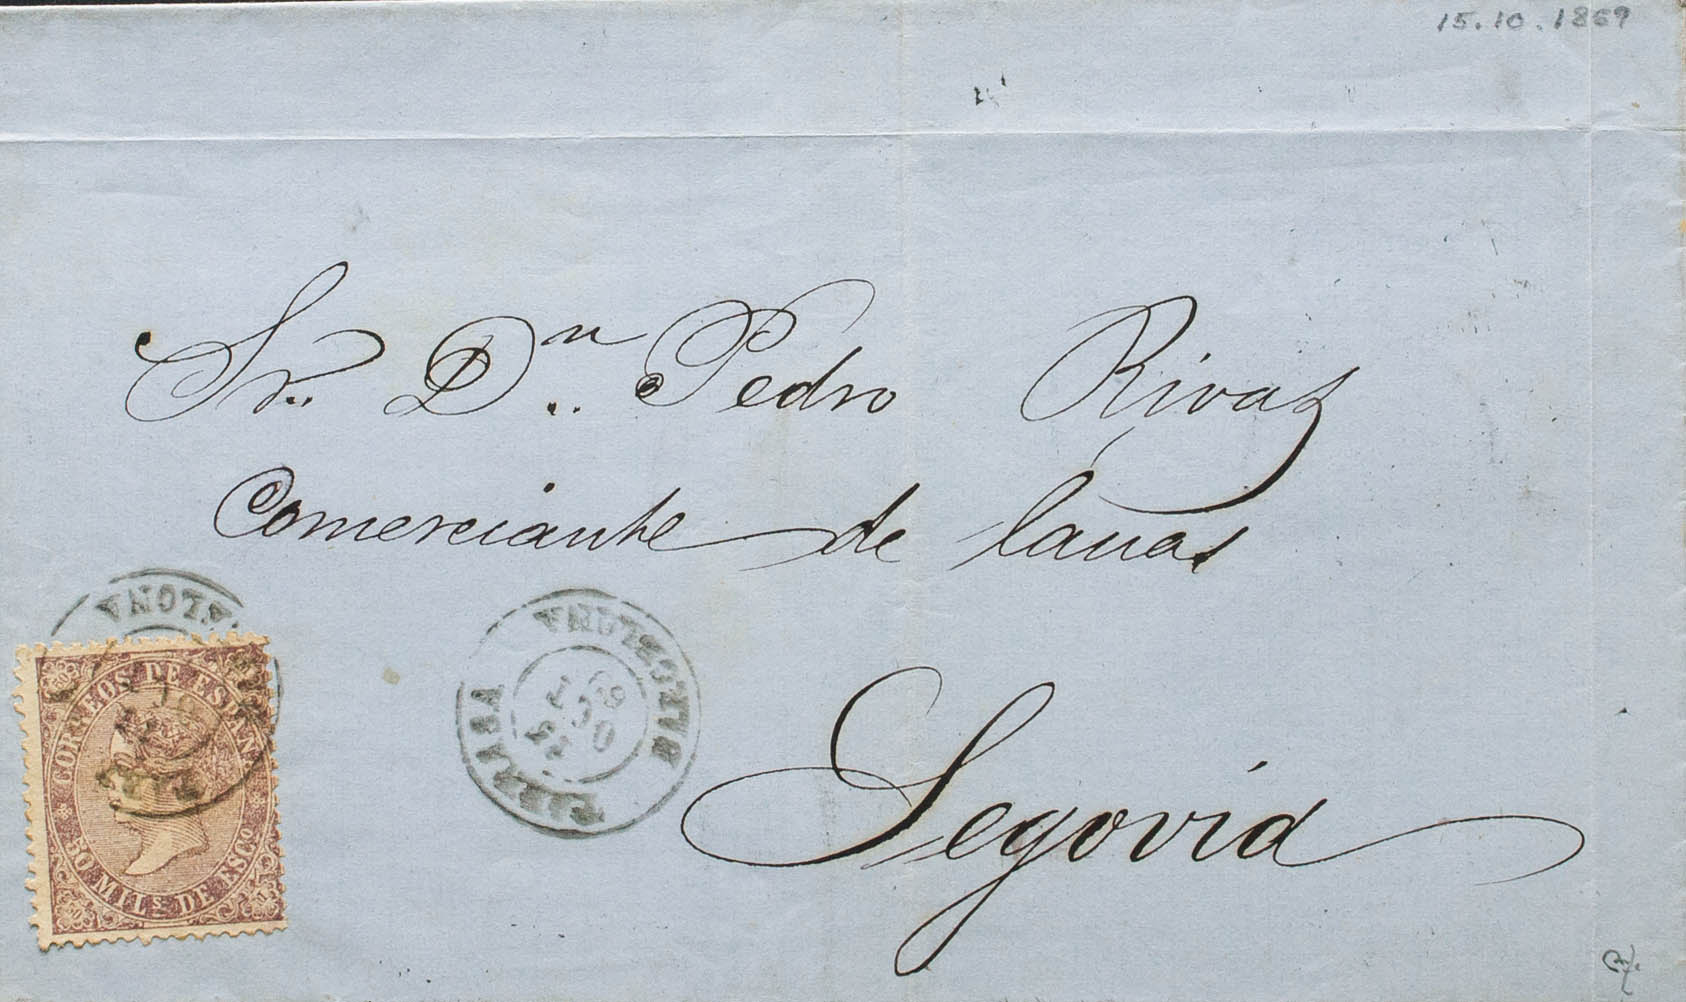 15.10.1869
Sr. Dn. Pedro Rivas
Comerciante de lanas
Segovia
TARRASA
BARCELONA
OCT
69
ALONA
CORREOS DE ESPAÑA
50 MILS. DE ESCO